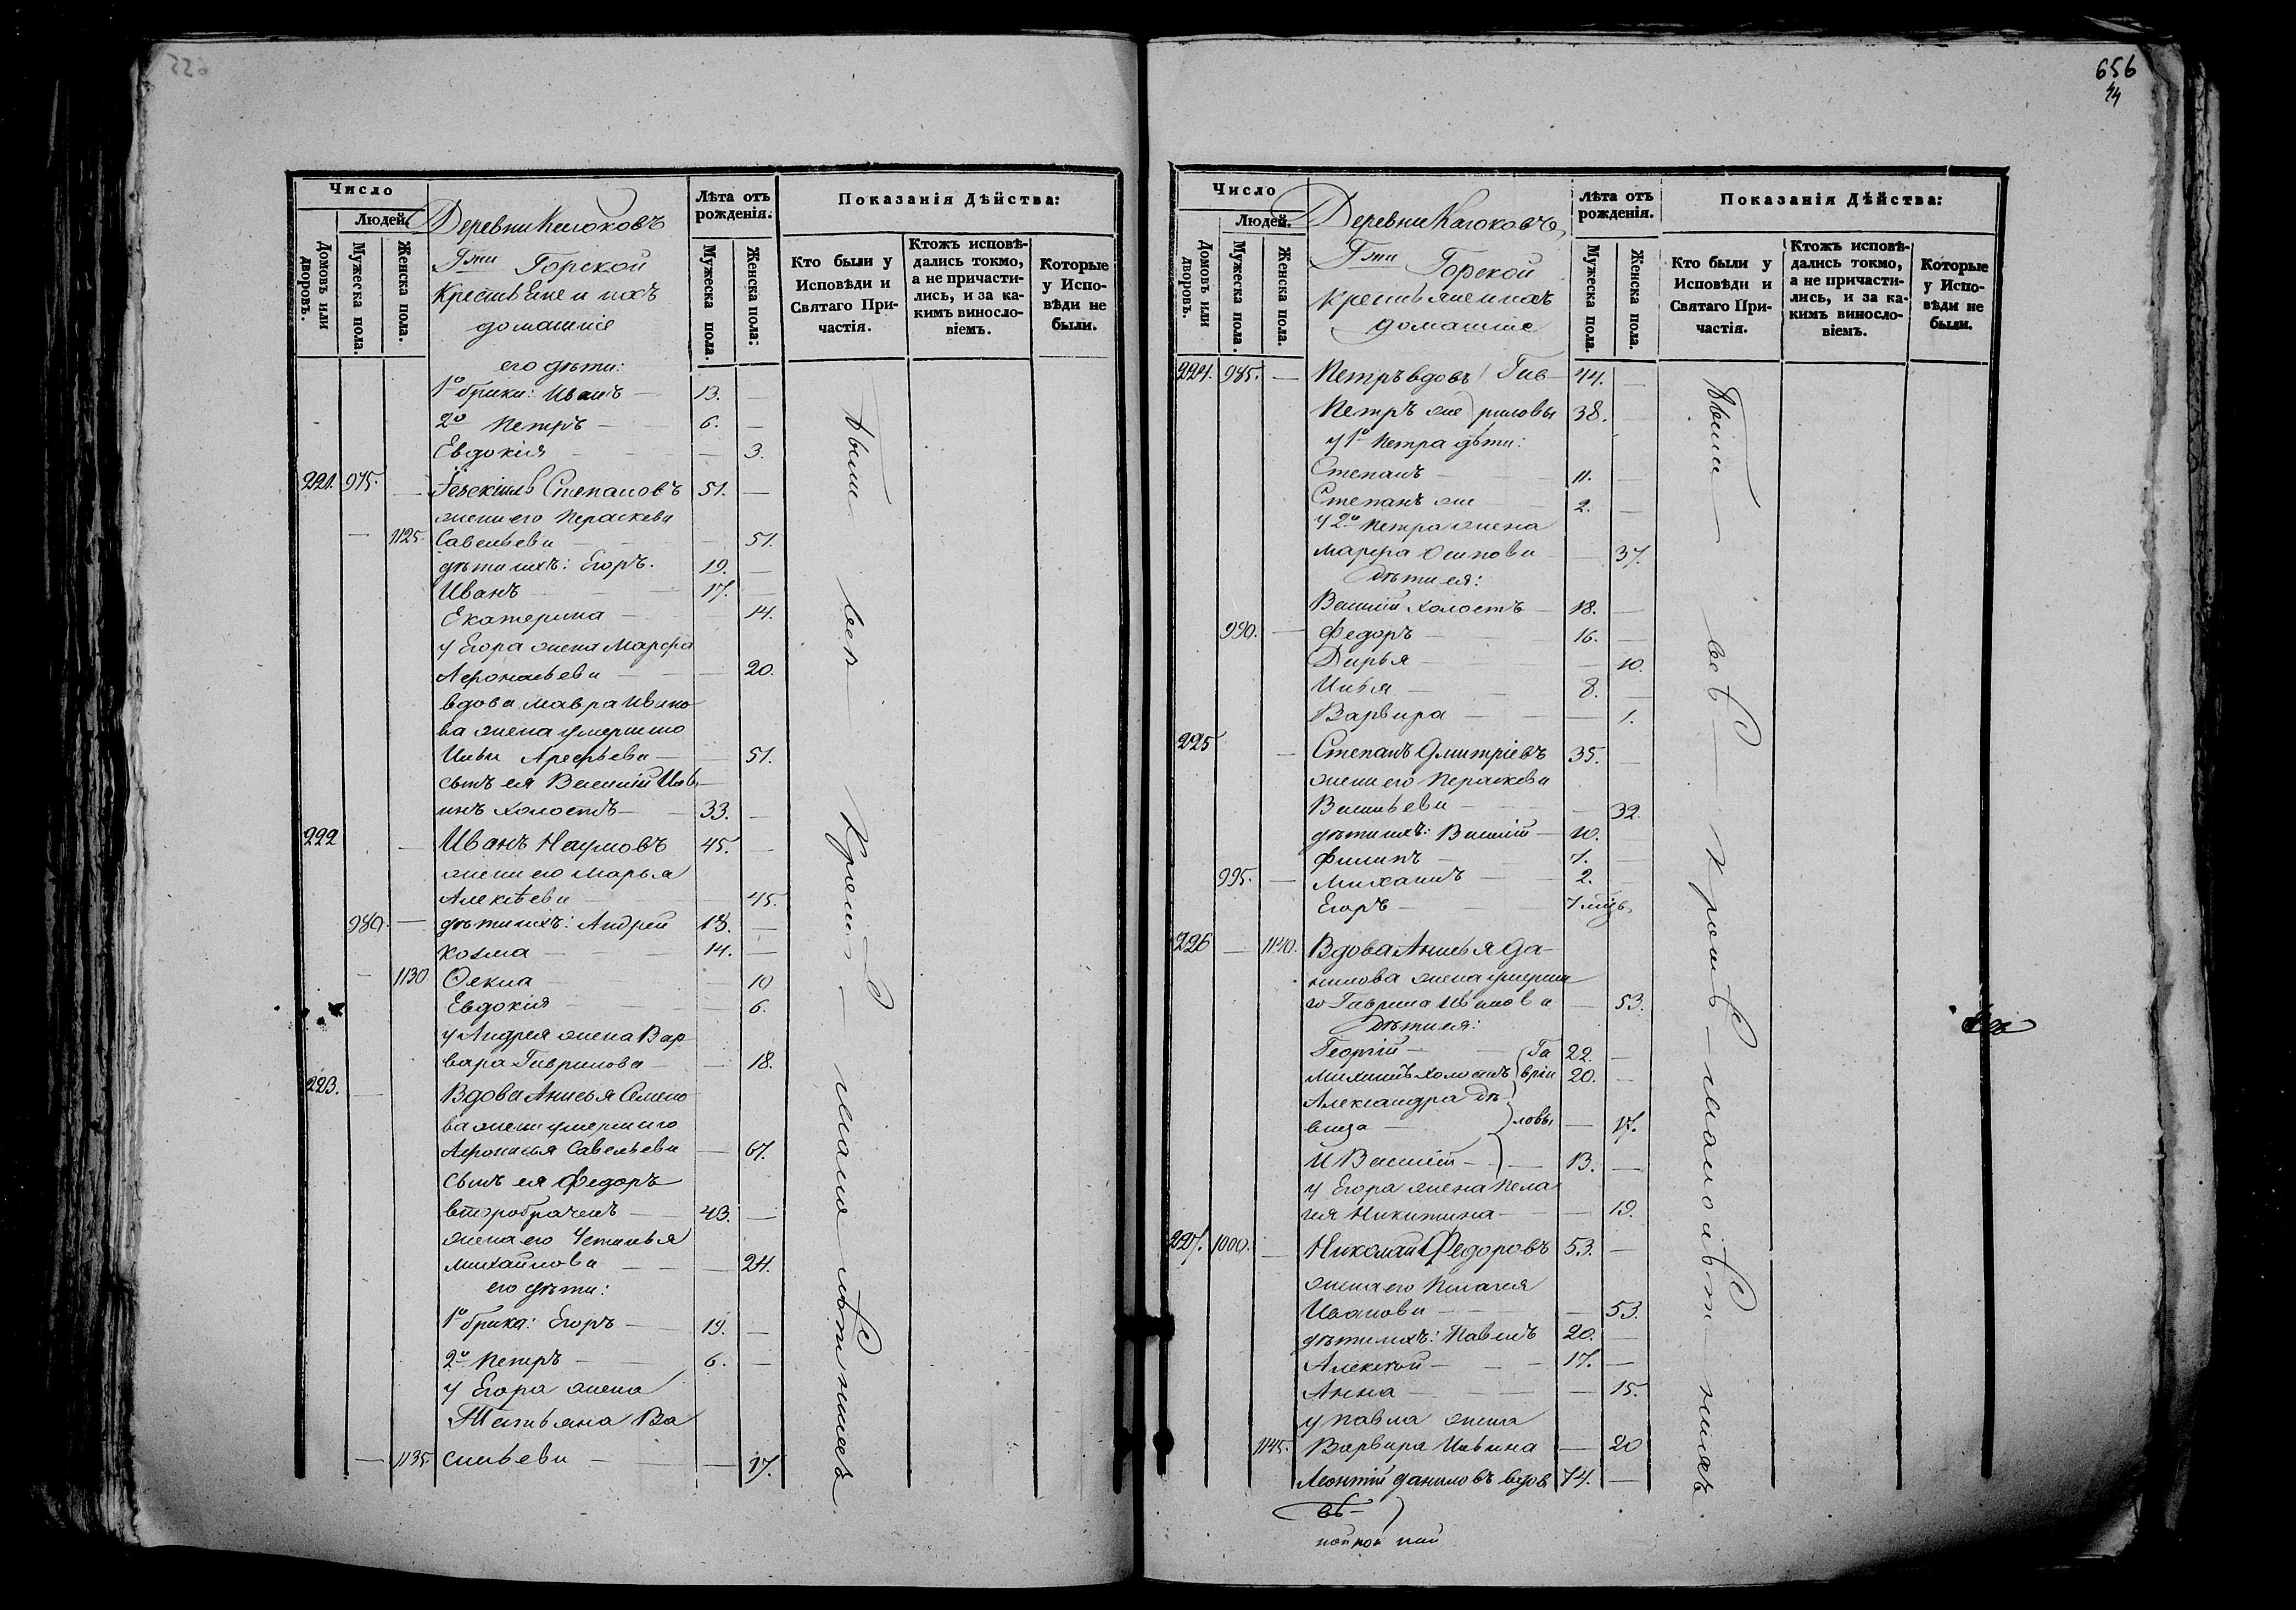 656
44
Число
Людей.
Домовъ или дворовъ.
Мужеска пола.
Женска пола.
Деревни Калюковъ
Гжи Горской
Крестьяне и ихъ
домашніе
Лѣта отъ рожденія.
Мужеска пола.
Женска пола:
Показанія Дѣйства:
Кто были у Исповѣди и Святаго Причастія.
Ктожъ исповѣдались токмо, а не причастились, и за какимъ винословіемъ.
Которые у Исповѣди не были.
его дѣти:
1го брака: Иванъ — 13. —
2го Петръ — 6. —
Евдокія — — 3.
221. 975. — Іезекіилъ Степановъ 51. —
жена его Параскева
— 1125. Савельева — 51.
дѣти ихъ: Егоръ. 19. —
Иванъ — 17. —
Екатерина — 14.
у Егора жена Марфа
Афонасьева — — 20.
вдова Мавра Ивано
ва жена умершаго
Ильи Арефьева — 51.
сынъ ея Василій Иль
инъ холостъ — 33. —
222 — Иванъ Наумовъ 45. —
жена его Марья
Алексѣева — 45.
980. — дѣти ихъ: Андрей 18. —
Козма — 14. —
— 1130 Фекла — 10
Евдокія — 6.
у Андрея жена Вар
вара Гаврилова — — 18.
223. — Вдова Анисья Семено
ва жена умершаго
Афонасья Савельева — 67.
сынъ ея Федоръ
второбраченъ — 43. —
жена его Устинья
Михайлова — — 24.
его дѣти:
1го брака: Егоръ — 19. —
2го Петръ — 6. —
у Егора жена
Татьяна Ва
— 1135. сильева — — 17.
Были — вси — кромѣ — малолѣтнихъ
Число
Людей.
Домовъ или дворовъ.
Мужеска пола.
Женска пола.
Деревни Калюковъ
Гжи Горской
крестьяне и ихъ
домашніе
Лѣта отъ рожденія.
Мужеска пола.
Женска пола.
Показанія Дѣйства:
Кто были у Исповѣди и Святаго Причастія.
Ктожъ исповѣдались токмо, а не причастились, и за какимъ винословіемъ.
Которые у Исповѣди не были.
224. 985. — Петръ вдовъ } Гав— 44. —
Петръ же } риловы 38. —
у 1го Петра дѣти:
Степанъ — 11. —
Степанъ же — 2. —
у 2го Петра жена
Марфа Осипова — 37.
дѣти ея:
Василій холостъ — 18. —
990. — Федоръ — 16. —
Дарья — — 10.
Илья — 8. —
Варвара — — 1.
225 — Степанъ Дмитріевъ 35. —
жена его Параскева
Васильева — — 32.
дѣти ихъ: Василій — 10. —
Филипъ — 7. —
995. — Михаилъ — 2. —
Егоръ — 7 мцъ.
226 — 1140. Вдова Анисья Да-
нилова жена умерша
го Гаврила Иванова — 53.
дѣти ея:
Георгій — } Га 22. —
Михаилъ холостъ } врии 20. —
Александра дѣ-
вица — } ловы — 17.
И Василій — 13. —
у Егора жена Пела
гея Никитина — — 19.
227. 1000. — Николай Федоровъ 53. —
жена его Пелагея
Иванова — — 53.
дѣти ихъ: Павелъ 20. —
Алексѣй — 17. —
Анна — — 15.
у Павла жена
1145. Варвара Ильина — 20
Леонтій Даниловъ вдовъ 74. —
Были — всѣ — кромѣ — малолѣт — нихъ